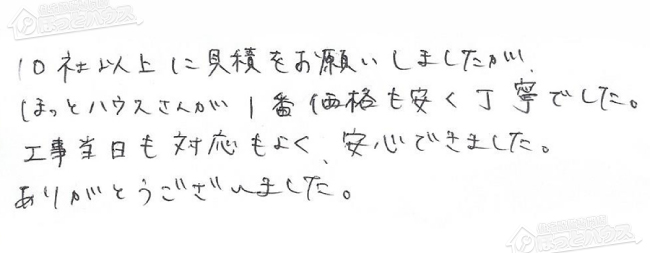 10社以上に見積をお願いしましたが、
ほっとハウスさんが1番価格も安く丁寧でした。
工事当日も対応もよく、安心できました。
ありがとうございました。
ほっとハウス
ほっとハウス